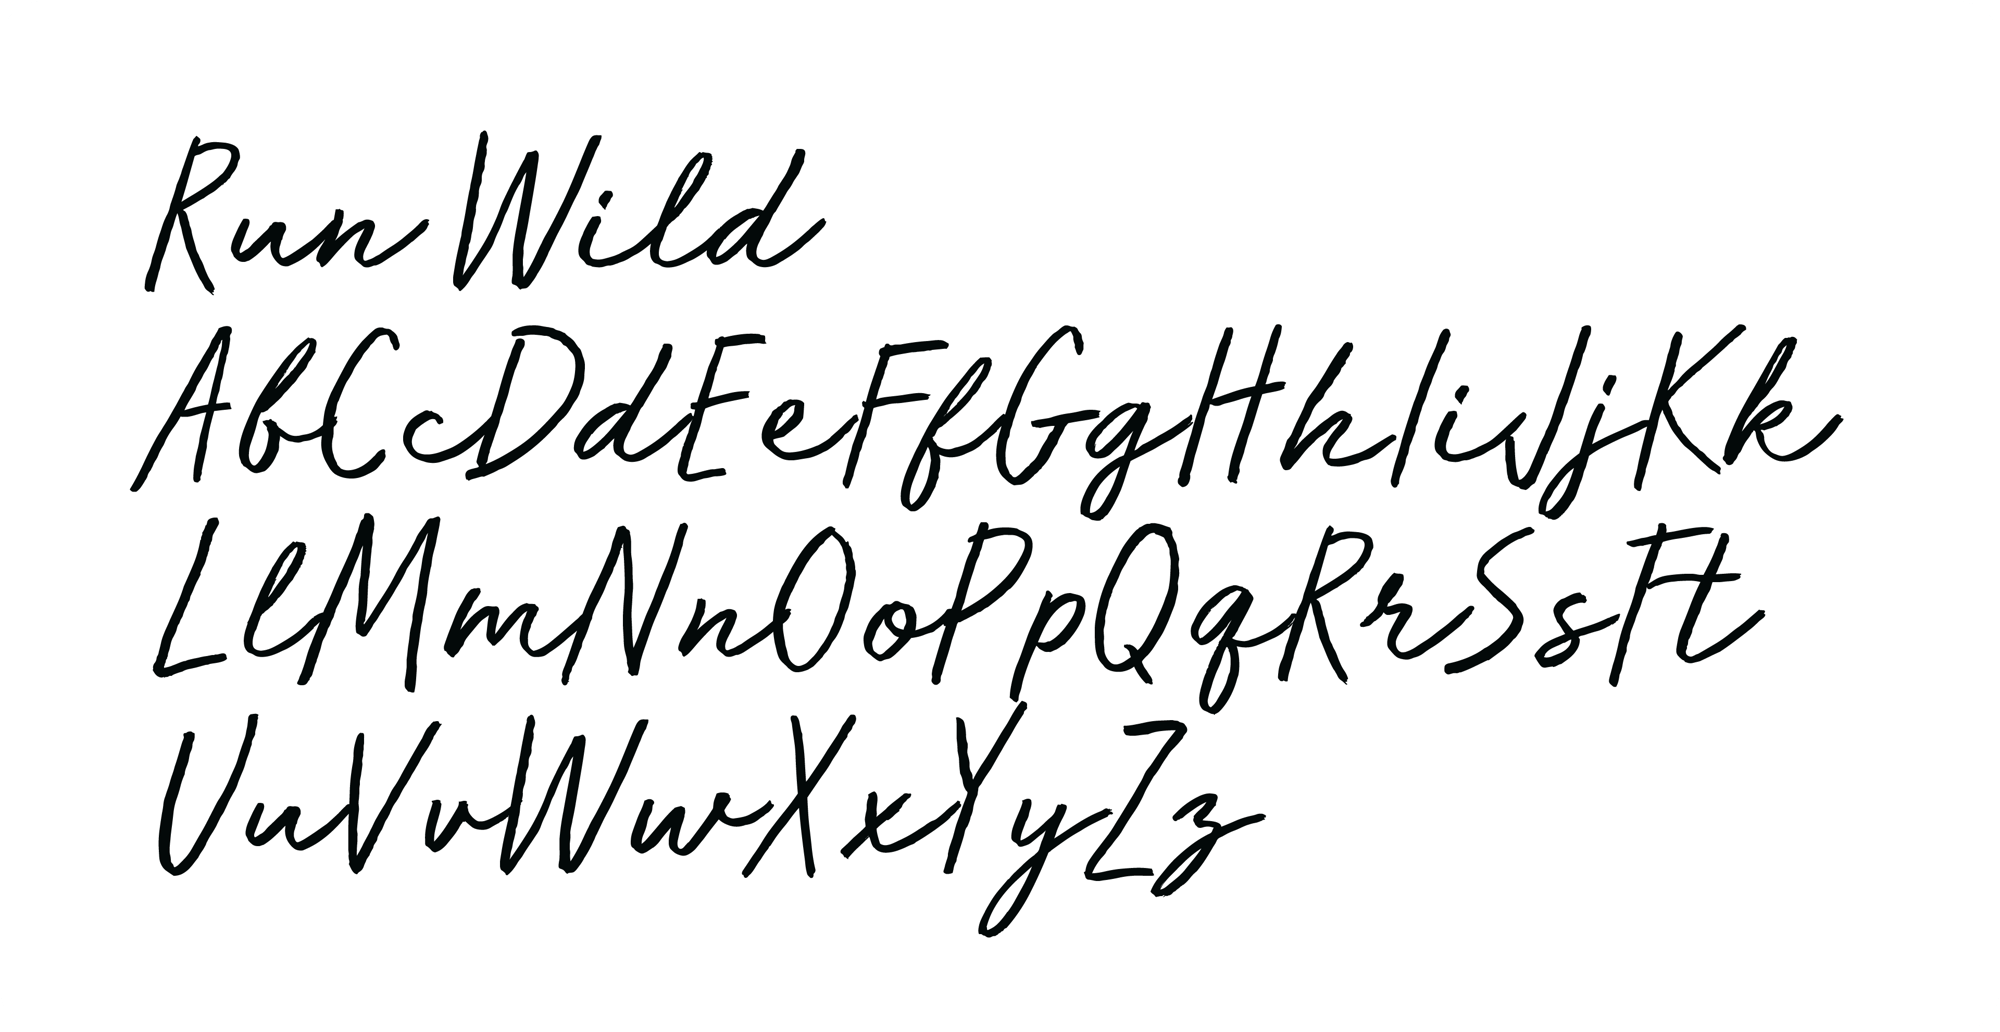 Run Wild
AbCcDdEeFfGgHhIiJjKk
LlMmNnOoPpQqRrSsTt
UuVvWwXxYyZz